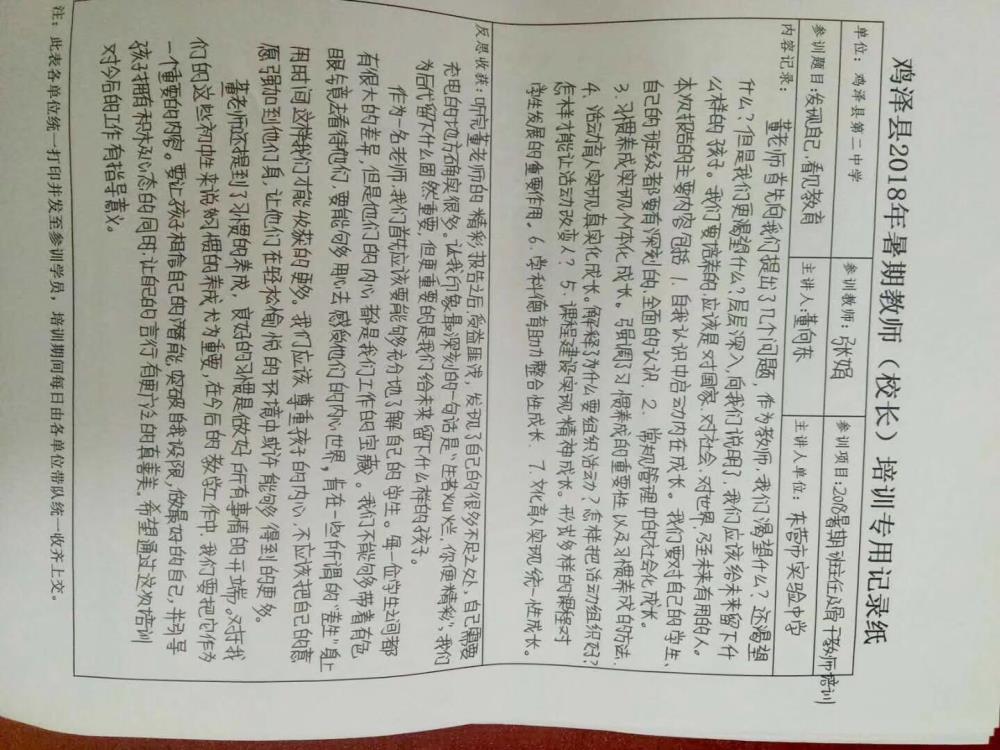 鸡泽县2018年暑期教师（校长）培训专用记录纸
单位：鸡泽县第二中学 参训教师：张娟 参训项目：2018暑期班主任及骨干教师培训
参训题目：发现自己，看见教育 主讲人：董向东 主讲人单位：东营市实验中学
内容记录：
董老师首先向我们提出了几个问题，作为教师，我们渴望什么？还渴望
什么？但是我们更渴望什么？层层深入，向我们说明了，我们应该给未来留下什
么样的孩子。我们要培养的，应该是对国家、对社会、对世界，乃至未来有用的人。
本次报告的主要内容包括 1. 自我认识中启动内在成长。我们要对自己的学生、
自己的班级都要有深刻的、全面的认识。2. 常规管理中的社会化成长。
3. 习惯养成实现个体化成长。强调了习惯养成的重要性以及习惯养成的方法.
4. 活动育人实现真实化成长。解释了为什么要组织活动？怎样把活动组织好？
怎样才能让活动改变人？ 5. 课程建设实现精神成长。形式多样的课程对
学生发展的重要作用。6. 学科德育助力整合性成长. 7. 文化育人实现统一性成长。
反思收获：听完董老师的精彩报告之后，受益匪浅，发现了自己的很多不足之处，自己需要
充电的地方确实很多。让我印象最深刻的一句话是“生若灿烂，你便精彩”，我们
为后代留下什么固然重要，但更重要的是我们给未来留下什么样的孩子。
作为一名老师，我们首先应该要能够充分地了解自己的学生。每一位学生之间都
有很大的差异，但是他们的内心都是我们工作的宝藏。我们不能够带着有色
眼镜去看待他们，要能够用心去感受他们的内心世界，肯在一些所谓的“差生”身上
用时间，这样我们才能收获的更多。我们应该尊重孩子的内心，不应该把自己的意
愿强加到他们身，让他们在轻松愉悦的环境中或许能够得到的更多。
董老师还提到了习惯的养成，良好的习惯是做好所有事情的开端。对于我
们的这些初中生来说好习惯的养成尤为重要，在今后的教学工作中，我们要把它作为
一个重要的内容。要让孩子相信自己的潜能，突破自我设限，做最好的自己，并引导
孩子拥有积极心态的同时：让自己的言行有更广泛的真善美。希望通过这次培训
对今后的工作有指导意义。
注：此表各单位统一打印并发至参训学员，培训期间每日由各单位带队统一收齐上交。